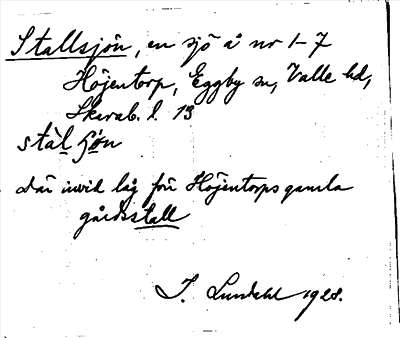 Stallsjön, en sjö å nr 1-7
Höjentorp, Eggby sn, Valle hd,
Skarab. l. 13
stál ʃøn
där invid låg förr Höjentorps gamla
gårdsstall
I. Lundahl 1928.